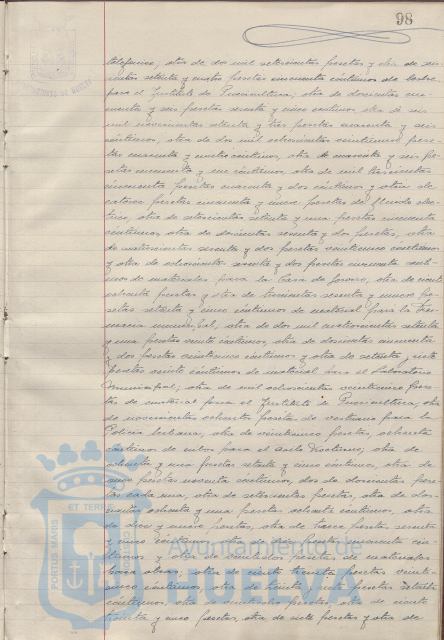 98
telefónico, otra de dos mil setecientas pesetas y otra de seis
cientas setenta y cuatro pesetas cincuenta céntimos de
para el Instituto de Puericultura, otra de doscientas cua
renta y seis pesetas sesenta y cinco céntimos otra de seis
mil novecientas setenta y tres pesetas cuarenta y seis
céntimos, otra de dos mil ochocientas veintinueve pese
tas cuarenta y cuatro céntimos, otra de cuarenta y seis pe
setas cincuenta y un céntimos, otra de mil trescientas
cincuenta pesetas cuarenta y dos céntimos y otra de
catorce pesetas cincuenta y cinco pesetas de fluido eléc
trico, otra de setecientas setenta y una pesetas cincuenta
céntimos, otra de doscientas sesenta y dos pesetas, otra
de cuatrocientas sesenta y dos pesetas veinticinco céntimos
y otra de ochocientas sesenta y dos pesetas cincuenta cénti
mos de materiales para la Casa de Socorro, otra de ciento
ochenta pesetas y otra de trescientas sesenta y nueve pe
setas setenta y cinco céntimos de material para la Far
macia municipal, otra de dos mil cuatrocientas setenta
y una pesetas veinte céntimos, otra de doscientas cuarenta
y dos pesetas veinticinco céntimos y otra de setenta y siete
pesetas veinte céntimos de material para el Laboratorio
Municipal; otra de mil ochocientas veinticinco pese
tas de material para el Instituto de Puericultura, otra
de novecientas ochenta pesetas de vestuario para la
Policía Urbana, otra de veinticinco pesetas ochenta
céntimos de para el Asilo Nocturno, otra de
ochenta y una pesetas setenta y cinco céntimos, otra de
pesetas noventa céntimos, dos de doscientas pese
tas cada una, otra de setecientas pesetas, otra de dos
cientas ochenta y una pesetas ochenta céntimos, otra
de diez y nueve pesetas, otra de trece pesetas sesenta
y cinco céntimos, otra de pesetas cincuenta cén
timos y otra de pesetas de materiales
para obras, otra de ciento treinta pesetas veinti
cinco céntimos, otra de treinta y una pesetas setenta
céntimos, otra de pesetas, otra de ciento
treinta y una pesetas, otra de siete pesetas y otra de
PORTUS MARIS ET TERRAE
Ayuntamiento de
HUELVA